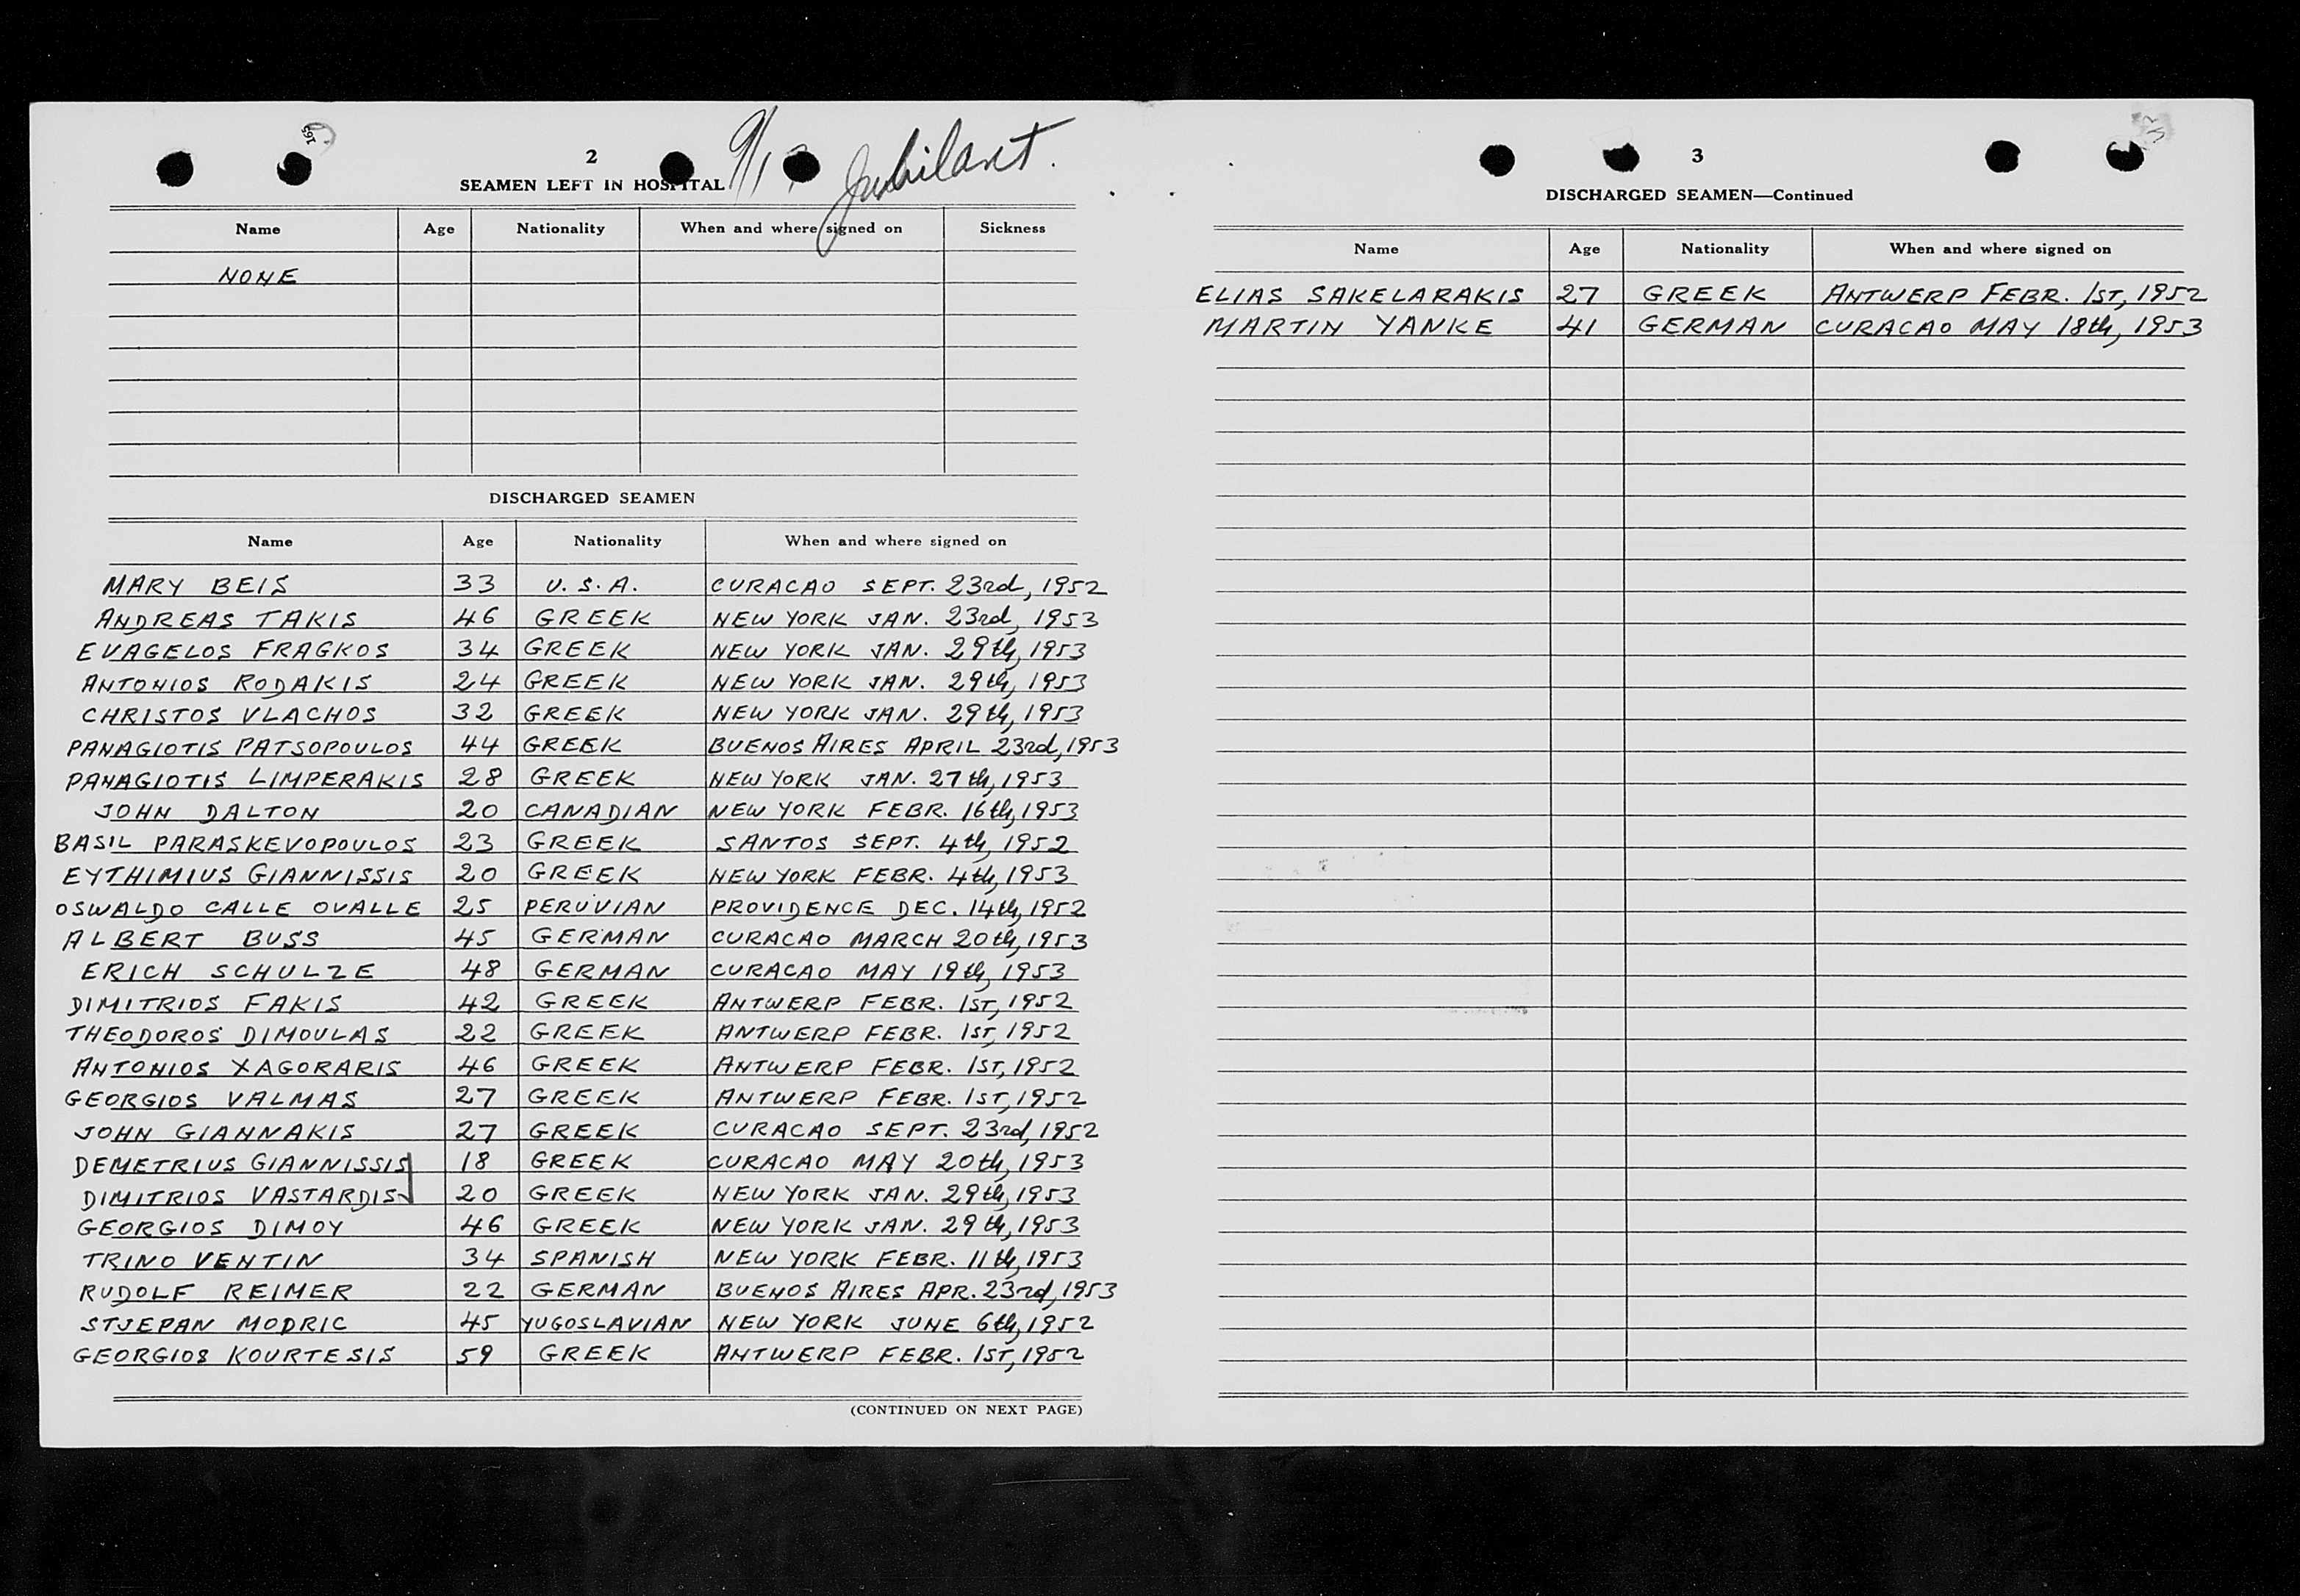 2
SEAMEN LEFT IN HOSPITAL
Jubilant.
Name Age Nationality When and where signed on Sickness
NONE
DISCHARGED SEAMEN
Name Age Nationality When and where signed on
MARY BEIS 33 U.S.A. CURACAO SEPT. 23rd, 1952
ANDREAS TAKIS 46 GREEK NEW YORK JAN. 23rd, 1953
EVAGELOS FRAGKOS 34 GREEK NEW YORK JAN. 29th, 1953
ANTONIOS RODAKIS 24 GREEK NEW YORK JAN. 29th, 1953
CHRISTOS VLACHOS 32 GREEK NEW YORK JAN. 29th, 1953
PANAGIOTIS PATSOPOULOS 44 GREEK BUENOS AIRES APRIL 23rd, 1953
PANAGIOTIS LIMPERAKIS 28 GREEK NEW YORK JAN. 27th, 1953
JOHN DALTON 20 CANADIAN NEW YORK FEBR. 16th, 1953
BASIL PARASKEVOPOULOS 23 GREEK SANTOS SEPT. 4th, 1952
EYTHIMIUS GIANNISSIS 20 GREEK NEW YORK FEBR. 4th, 1953
OSWALDO CALLE OVALLE 25 PERUVIAN PROVIDENCE DEC. 14th, 1952
ALBERT BUSS 45 GERMAN CURACAO MARCH 20th, 1953
ERICH SCHULZE 48 GERMAN CURACAO MAY 19th, 1953
DIMITRIOS FAKIS 42 GREEK ANTWERP FEBR. 1ST, 1952
THEODOROS DIMOULAS 22 GREEK ANTWERP FEBR. 1ST, 1952
ANTONIOS XAGORARIS 46 GREEK ANTWERP FEBR. 1ST, 1952
GEORGIOS VALMAS 27 GREEK ANTWERP FEBR. 1ST, 1952
JOHN GIANNAKIS 27 GREEK CURACAO SEPT. 23rd, 1952
DEMETRIUS GIANNISSIS 18 GREEK CURACAO MAY 20th, 1953
DIMITRIOS VASTARDIS 20 GREEK NEW YORK JAN. 29th, 1953
GEORGIOS DIMOY 46 GREEK NEW YORK JAN. 29th, 1953
TRINO VENTIN 34 SPANISH NEW YORK FEBR. 11th, 1953
RUDOLF REIMER 22 GERMAN BUENOS AIRES APR. 23rd, 1953
STJEPAN MODRIC 45 YUGOSLAVIAN NEW YORK JUNE 6th, 1952
GEORGIOS KOURTESIS 59 GREEK ANTWERP FEBR. 1ST, 1952
(CONTINUED ON NEXT PAGE)
3
DISCHARGED SEAMEN—Continued
Name Age Nationality When and where signed on
ELIAS SAKELARAKIS 27 GREEK ANTWERP FEBR. 1ST, 1952
MARTIN YANKE 41 GERMAN CURACAO MAY 18th, 1953